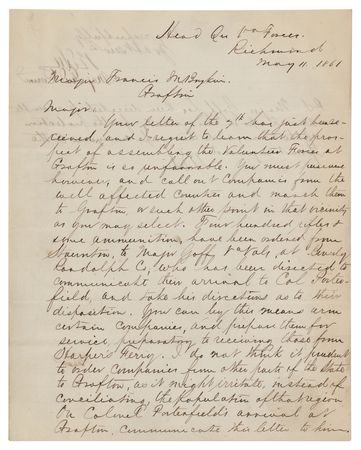 Head Qrs Va Forces.
Richmond
May 11. 1861
Major Francis M. Boykin.
Grafton
Major
Your letter of the 7th has just been re-
ceived, and I regret to learn that the pros-
pect of assembling the Volunteer Forces at
Grafton is so unfavorable. You must persevere
however, and call out Companies from the
well affected Counties and march them
to Grafton, or such other point in that vicinity
as you may select. Four hundred rifles &
some ammunition, have been ordered from
Staunton, to Major Goff, at Beverly
Randolph Co, who has been directed to
communicate their arrival to Col Porter-
field, and take his directions as to their
disposition. You can by this means arm
certain Companies, and prepare them for
service, preparatory to receiving those from
Harpers Ferry. I do not think it prudent
to order companies from other parts of the state
to Grafton, as it might irritate, instead of
conciliating the population of that region
On Colonel Porterfield's arrival at
Grafton, communicate this letter to him.